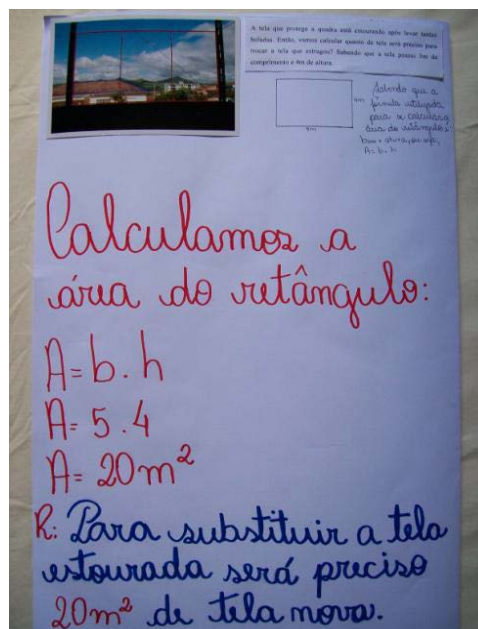 A tela que protege a quadra está estourando após levar tantas
boladas. Então, vamos calcular quanto de tela será preciso para
trocar a tela que estragou? Sabendo que a tela possui 5m de
comprimento e 4m de altura.
4m
5m
Sabendo que a
fórmula utilizada
para se calcular a
área do retângulo é
base x altura, ou seja,
A= b.h
Calculamos a
área do retângulo:
A= b.h
A= 5.4
A= 20m²
R: Para substituir a tela
estourada será preciso
20m² de tela nova.